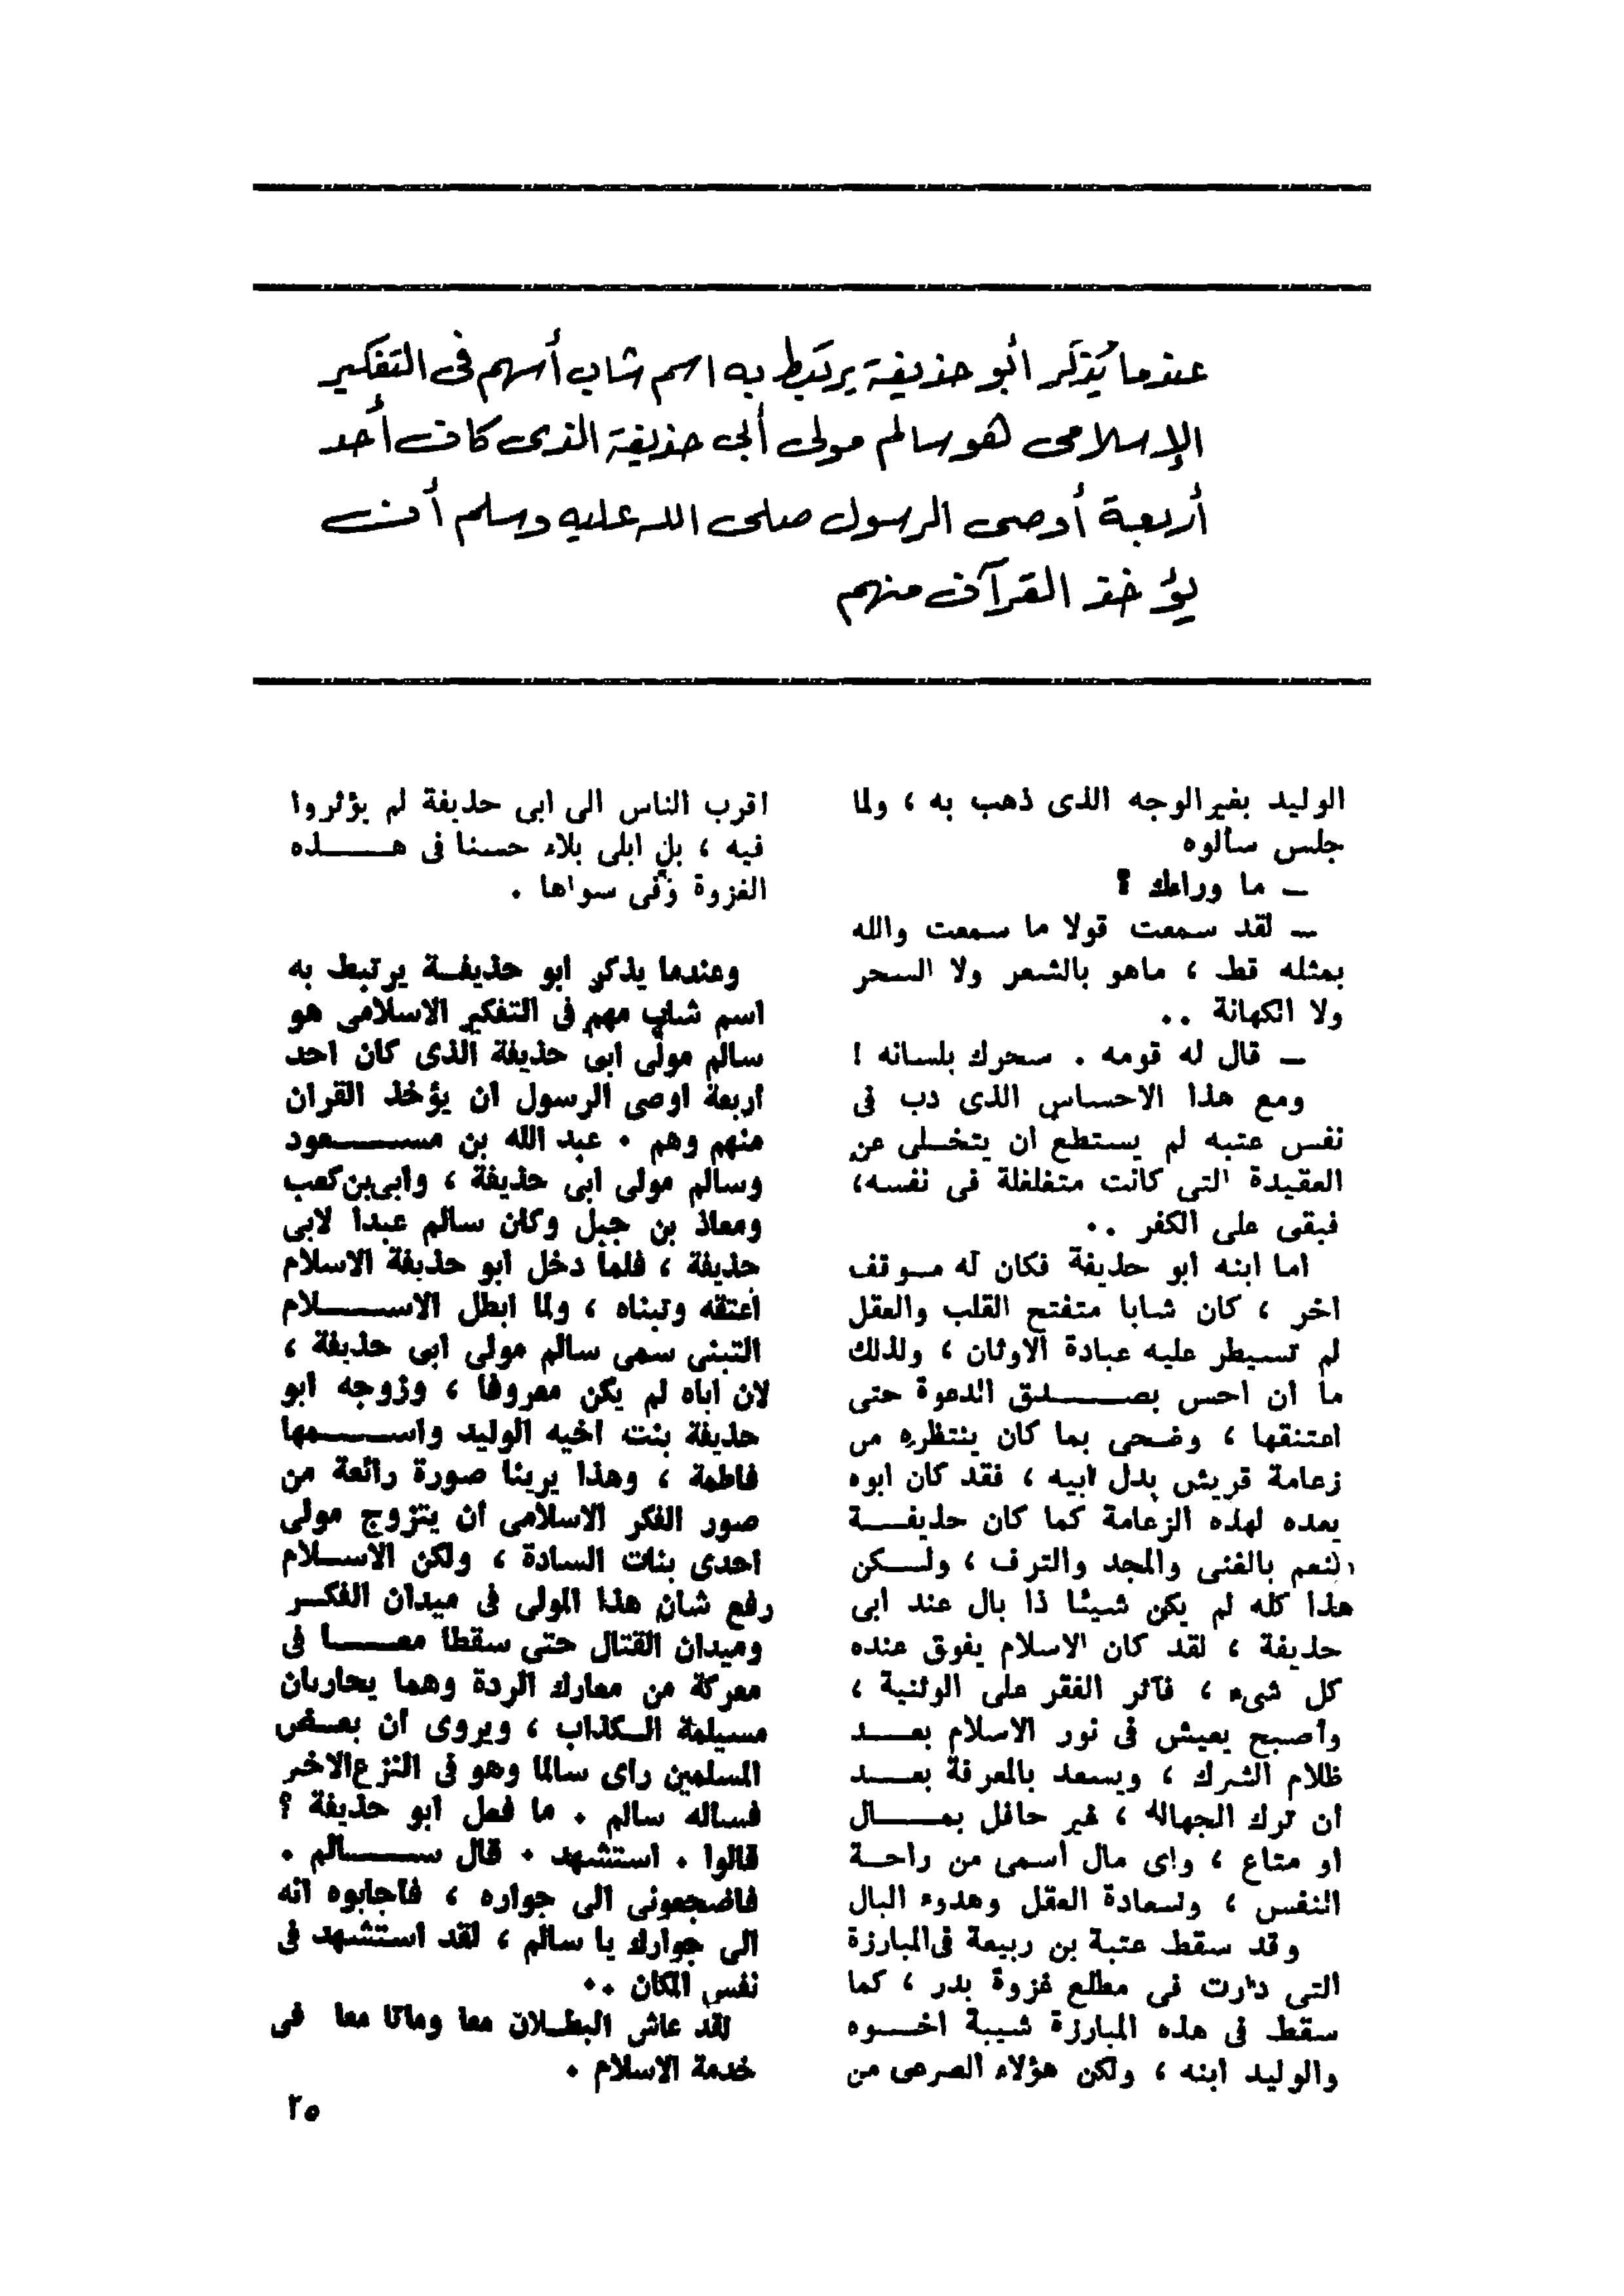 عندما يُذكَر أبو حذيفة يرتبط به اسم شاب أسهم فى التفكير
الإسلامى هو سالم مولى أبى حذيفة الذى كان أحد
أربعة أوصى الرسول صلى الله عليه وسلم أن
يؤخذ القرآن منهم
الوليد بغير الوجه الذى ذهب به ، ولما
جلس سألوه
— ما وراءك ؟
— لقد سمعت قولا ما سمعت والله
بمثله قط ، ماهو بالشعر ولا السحر
ولا الكهانة ..
— قال له قومه . سحرك بلسانه !
ومع هذا الاحساس الذى دب فى
نفس عتبه لم يستطع ان يتخلى عن
العقيدة التى كانت متغلغلة فى نفسه،
فبقى على الكفر ..
اما ابنه ابو حذيفة فكان له موقف
اخر ، كان شابا متفتح القلب والعقل
لم تسيطر عليه عبادة الاوثان ، ولذلك
ما ان احس بصدق الدعوة حتى
اعتنقها ، وضحى بما كان ينتظره من
زعامة قريش بدل ابيه ، فقد كان ابوه
يعده لهذه الزعامة كما كان حذيفة
النعم بالغنى والمجد والترف ، ولكن
هذا كله لم يكن شيئا ذا بال عند ابى
حذيفة ، لقد كان الاسلام يفوق عنده
كل شىء ، فآثر الفقر على الوثنية ،
وأصبح يعيش فى نور الاسلام بعد
ظلام الشرك ، ويسعد بالمعرفة بعد
ان ترك الجهالة ، غير حافل بمال
او متاع ، وأى مال أسمى من راحة
النفس ، وسعادة العقل وهدوء البال
وقد سقط عتبة بن ربيعة فى المبارزة
التى دارت فى مطلع غزوة بدر ، كما
سقط فى هذه المبارزة شيبة اخوه
والوليد ابنه ، ولكن هؤلاء الصرعى من
اقرب الناس الى ابى حذيفة لم يؤثروا
فيه ، بل ابلى بلاء حسنا فى هذه
الغزوة وفى سواها .
وعندما يذكر ابو حذيفة يرتبط به
اسم شاب مهم فى التفكير الاسلامى هو
سالم مولى ابى حذيفة الذى كان احد
اربعة اوصى الرسول ان يؤخذ القران
منهم وهم . عبد الله بن مسعود
وسالم مولى ابى حذيفة ، وابى بن كعب
ومعاذ بن جبل وكان سالم عبدا لابى
حذيفة ، فلما دخل ابو حذيفة الاسلام
أعتقه وتبناه ، ولما ابطل الاسلام
التبنى سمى سالم مولى ابى حذيفة ،
لان اباه لم يكن معروفا ، وزوجه ابو
حذيفة بنت اخيه الوليد واسمها
فاطمة ، وهذا يرينا صورة رائعة من
صور الفكر الاسلامى ان يتزوج مولى
احدى بنات السادة ، ولكن الاسلام
رفع شان هذا المولى فى ميدان الفكر
وميدان القتال حتى سقطا معا فى
معركة من معارك الردة وهما يحاربان
مسيلمة الكذاب ، ويروى ان بعض
المسلمين راى سالما وهو فى النزع الاخر
فساله سالم . ما فعل ابو حذيفة ؟
قالوا . استشهد . قال سالم .
فاضجعونى الى جواره ، فأجابوه انه
الى جوارك يا سالم ، لقد استشهد فى
نفس المكان ..
لقد عاش البطلان معا وماتا معا فى
خدمة الاسلام .
٢٥